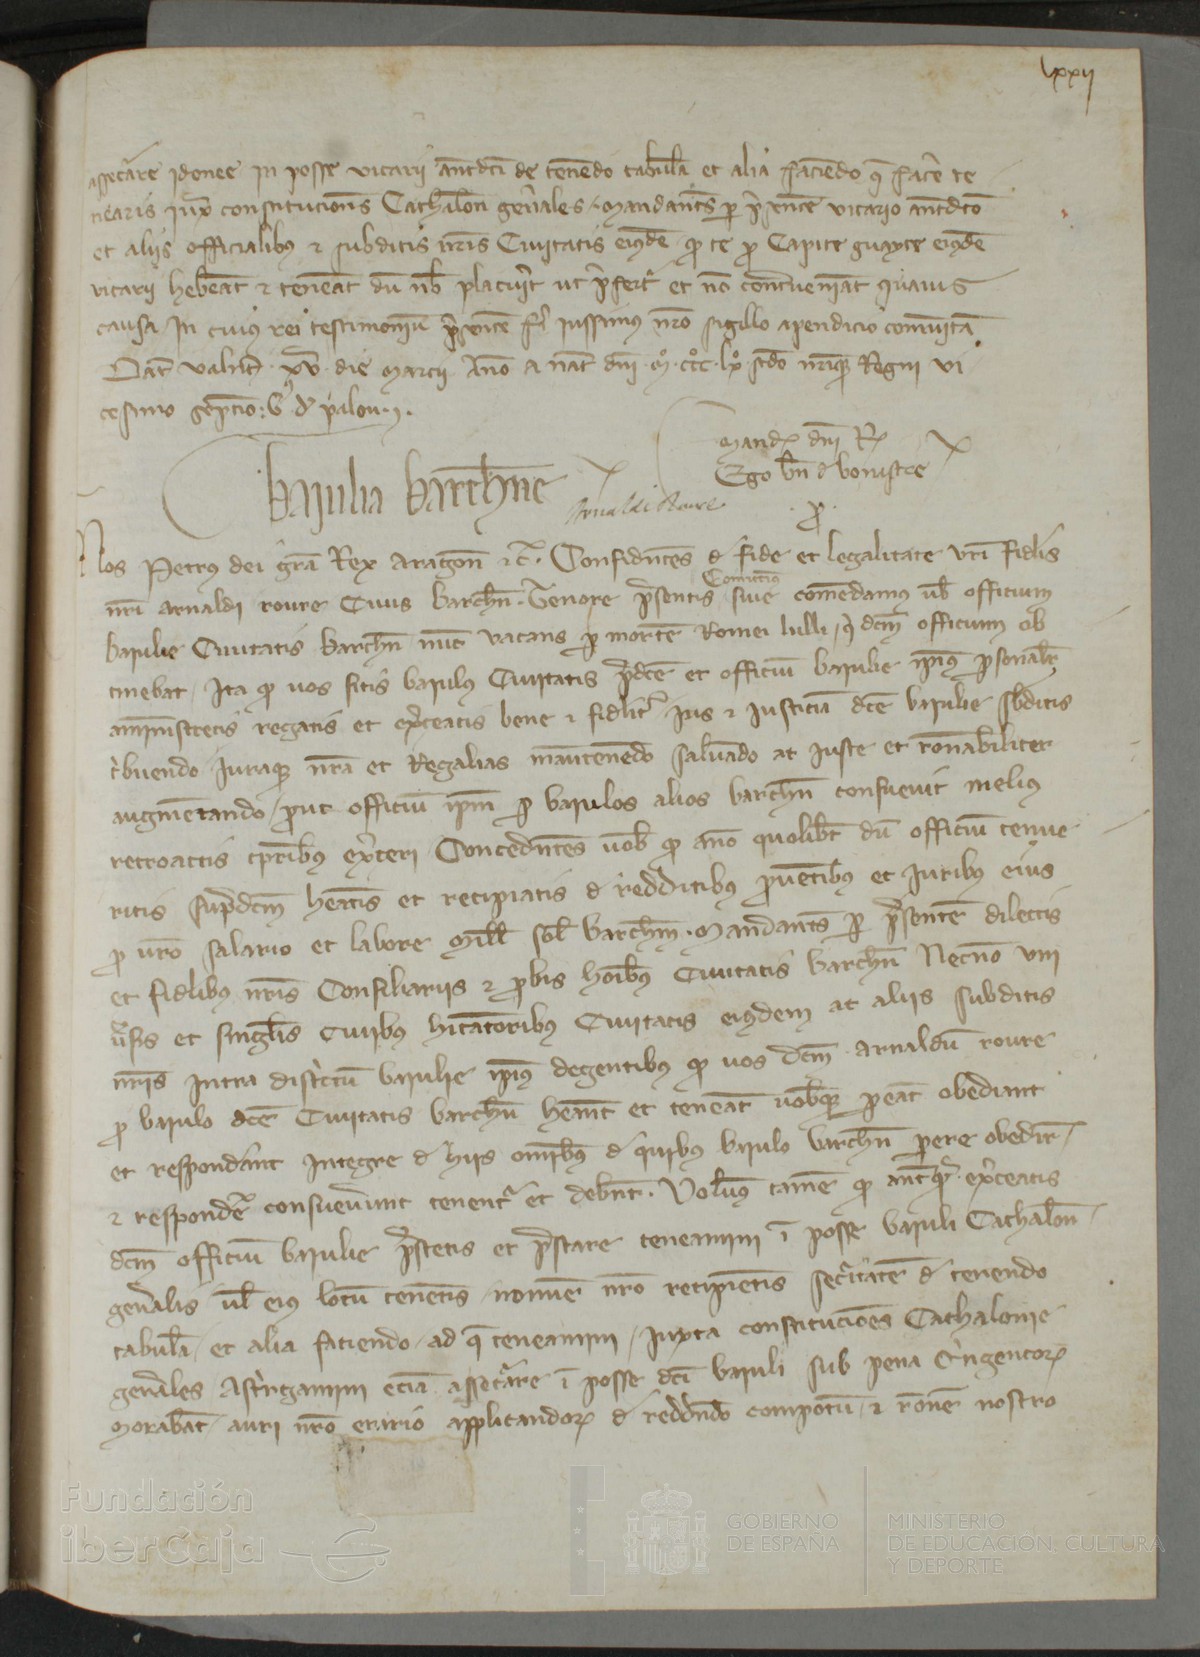 lxxij
assecurare idonee in posse vicarii antedicti de tenendo tabulam et alia faciendo que facere te
nearis iuxta constituciones Cathalonie generales. Mandantes per presentem vicario antedicto
et aliis officialibus et subditis nostris Civitatis eiusdem quod te pro Capite guayte eiusdem
vicarii habeant et teneant dum nobis placuerit ut prefertur et non contraveniant quavis
causa. In cuius rei testimonium presentem fieri iussimus nostro sigillo apendicio comunitam
Dat Valencie xv die Marcii Anno a nat dni Mº CCCº lxº scdo nrique Regni vi
cesimo septimo: G de palou.
Mandato dni R
Ego bn de bonastre
pro
Bajulia Barchne
Arnaldi Roure
Nos Petrus dei gra Rex Aragon etc. Confidentes de fide et legalitate vri fidelis
nri Arnaldi roure Civis Barchn. Tenore presentis Comittimus sive comendamus vob officium
bajulie Civitatis Barchn nunc vacans per mortem Romei lulli qui dcm officium ob
tinebat. Ita quod vos sitis bajulus Civitatis predce et officium bajulie ipius personaliter
aministretis regatis et exerceatis bene et fideliter ius et iusticiam dce bajulie subditis
tribuendo Juraque nra et Regalias manutenendo salvando ac iuste et ronabiliter
augmentando prout officium ipm per bajulos alios Barchn consuevit melius
retroactis temporibus exerceri. Concedentes vob quod anno quolibet dum officium tenue
ritis supradcm heatis et recipiatis de redditibus proventibus et Juribus eius
pro vro salario et labore Mille sol barchn. Mandantes per presentem dilectis
et fidelibus nris Consiliariis et probis hoibus Civitatis Barchn Necnon uni
versis et singulis civibus hitatoribus Civitatis eiusdem ac aliis subditis
nris intra districtum bajulie ipius degentibus quod vos dcm Arnaldum roure
pro bajulo dce Civitatis Barchn heant et teneant vobisque pareant obediant
et respondeant integre de hiis omibus de quibus bajulo Barchn parere obedire
et respondere consueverunt tenentur et debent. Volumus tamen quod antequam exerceatis
dcm officium bajulie prestetis et prestare teneamini in posse bajuli Cathalon
generalis vel eius locum tenentis nomine nro recipientis securitatem de tenendo
tabulam et alia faciendo ad que teneamini iuxta constituciones Cathalonie
generales Astringamini eciam assecurare in posse dci bajuli sub pena Quingentorum
Morabat auri nro erario applicandorum de reddendo compotum et ronem nostro
Fundación
iberCaja
GOBIERNO
DE ESPAÑA
MINISTERIO
DE EDUCACIÓN, CULTURA
Y DEPORTE